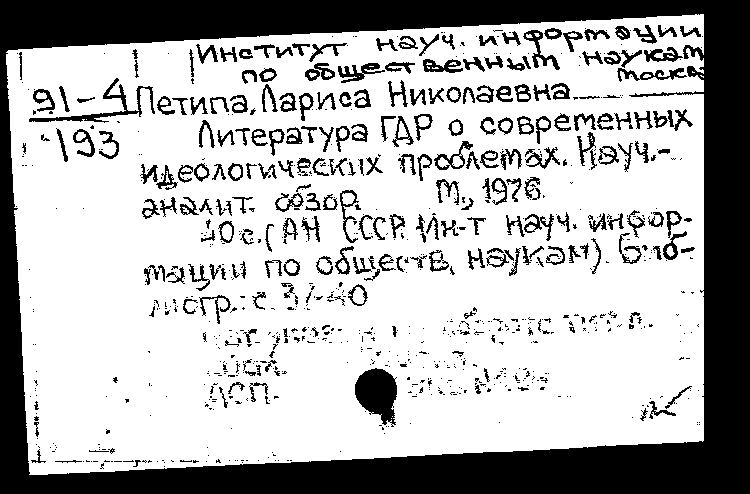 Институт науч. информации
по общественным наукам
Москва
91-4 Петипа, Лариса Николаевна
193 Литература ГДР о современных
идеологических проблемах. Науч.-
аналит. обзор. М., 1976.
40 с. (АН СССР. Ин-т науч. инфор-
мации по обществ. наукам). Библ-
лиогр.: с. 37-40
на обороте тит. л.
ДСП.